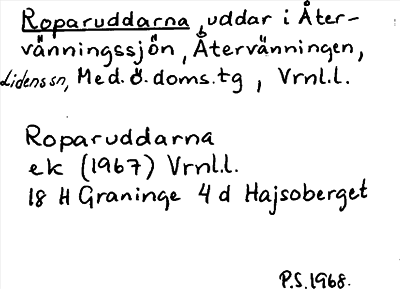 Roparuddarna, uddar i Åter-
vänningssjön, Återvänningen,
Lidens sn, Med.ö.doms.tg, Vrnl.l.
Roparuddarna
ek (1967) Vrnl.l.
18 H Graninge 4 d Hajsoberget
P.S.1968.